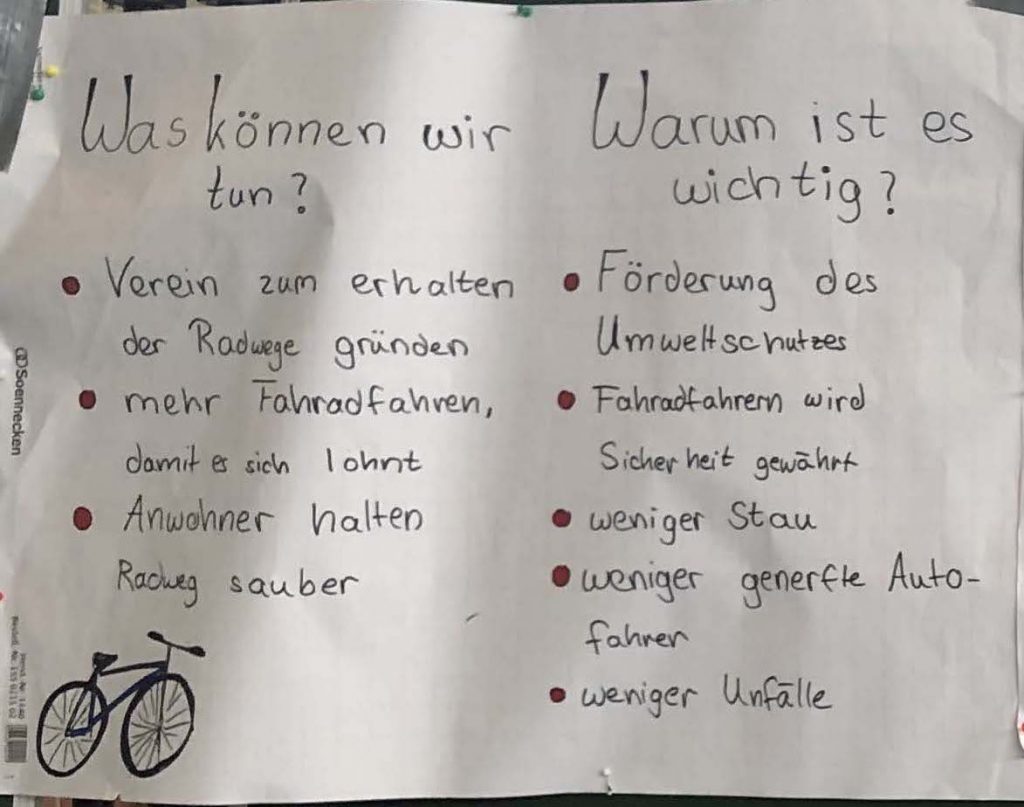 Was können wir
tun?
• Verein zum erhalten
der Radwege gründen
• mehr Fahradfahren,
damit es sich lohnt
• Anwohner halten
Radweg sauber
Warum ist es
wichtig?
• Förderung des
Umweltschutzes
• Fahradfahrern wird
Sicherheit gewährt
• weniger Stau
• weniger generfte Auto-
fahrer
• weniger Unfälle
Soennecken